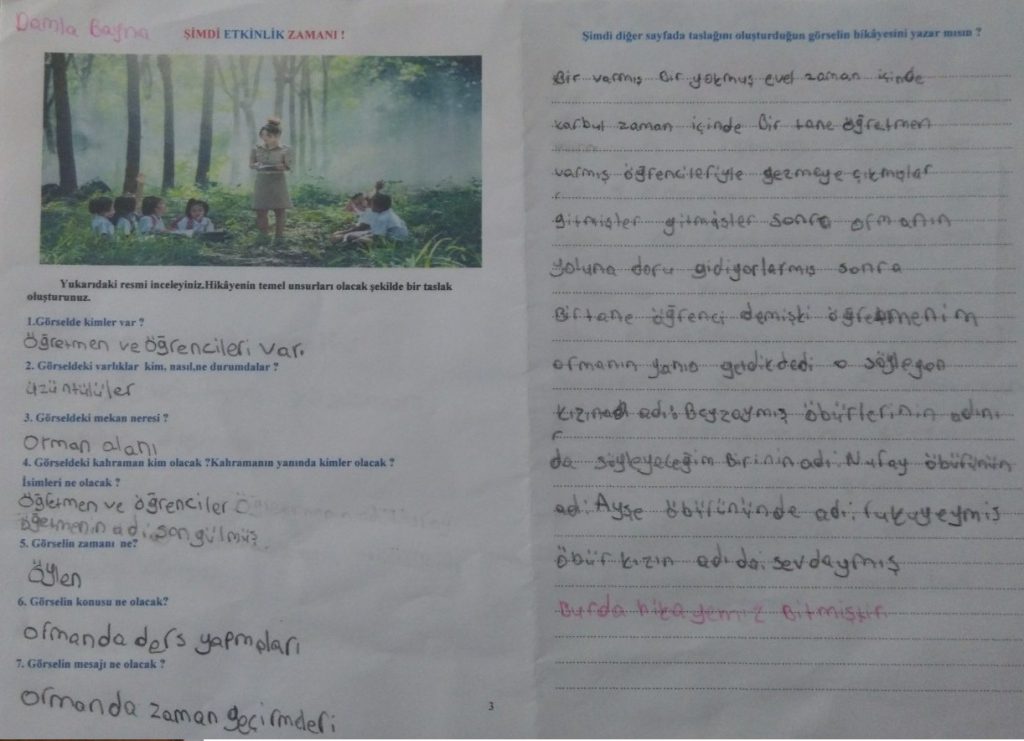 Damla
ŞİMDİ ETKİNLİK ZAMANI !
Yukarıdaki resmi inceleyiniz.Hikâyenin temel unsurları olacak şekilde bir taslak
oluşturunuz.
1.Görselde kimler var ?
Öğretmen ve öğrencileri var.
2. Görseldeki varlıklar kim, nasıl,ne durumdalar ?
üzüntülüler
3. Görseldeki mekan neresi ?
orman alanı
4. Görseldeki kahraman kim olacak ?Kahramanın yanında kimler olacak ?
İsimleri ne olacak ?
Öğretmen ve öğrenciler
öğetmenin adı songülmüş
5. Görselin zamanı ne?
Öylen
6. Görselin konusu ne olacak?
ormanda ders yapmaları
7. Görselin mesajı ne olacak ?
ormanda zaman geçirmeleri
3
Şimdi diğer sayfada taslağını oluşturduğun görselin hikâyesini yazar mısın ?
Bir varmış bir yokmuş evel zaman içinde
karbul zaman içinde Bir tane öğretmen
varmış öğrencileriyle gezmeye çıkmışlar
gitmişler gitmişler sonra ormanın
yoluna doru gidiyorlarmış sonra
Birtane öğrenci demişki öğretmenim
ormanın yanıa o söyleyen
adı: Beyzaymış öbürlerinin adını
da söyleyeceğim Birinin adı Nuray öbürünün
adı: Ayşe öbürününde adı: rukayeymiş
öbür kızın adıda: sevdaymış
Burda hikayemiz Bitmiştir